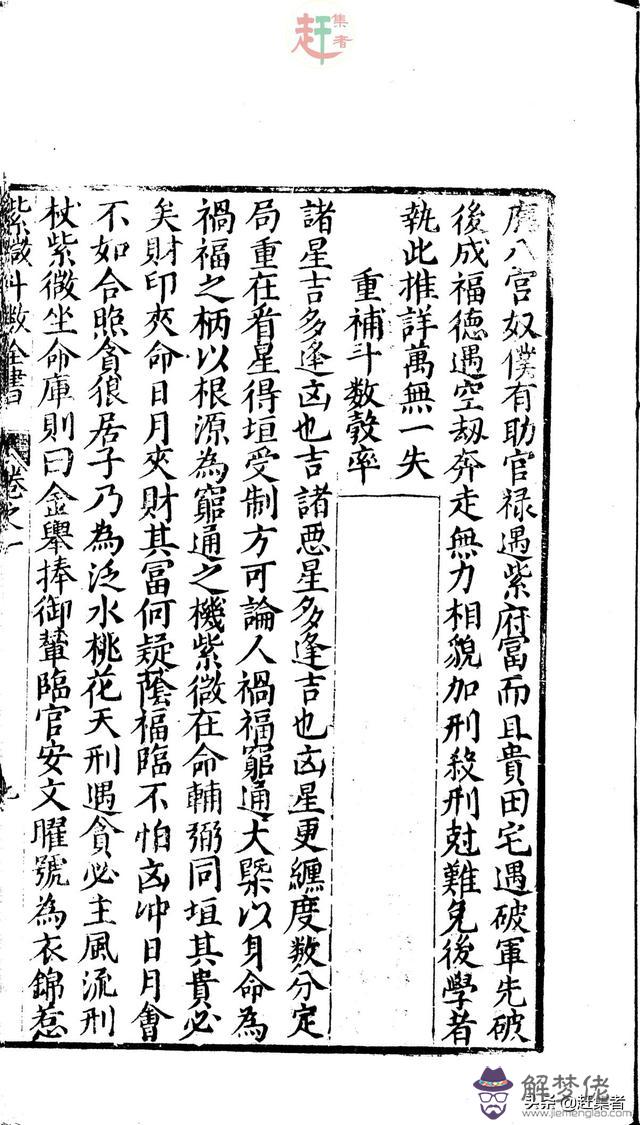 赶集者
廣八宮奴僕有助官禄遇紫府富而且貴田宅遇破軍先破
後成福德遇空刼奔走無力相貌加刑殺刑尅難免後學者
執此推詳萬無一失
重補斗数彀率
諸星吉多逢凶也吉諸惡星多逢吉也凶星更纏度数分定
局重在看星得垣受制方可論人禍福窮通大槩以身命為
禍福之柄以根源為窮通之機紫微在命輔弼同垣其貴必
矣財印夾命日月夾財其冨何疑蔭福臨不怕凶冲日月會
不如合照貪狼居子乃為泛水桃花天刑遇貪必主風流刑
杖紫微坐命庫則曰金轝捧御輦臨官安文曜號為衣錦惹
紫微斗数全書 卷之一 七
解梦佬
www.jiemenglao.com
头条@赶集者